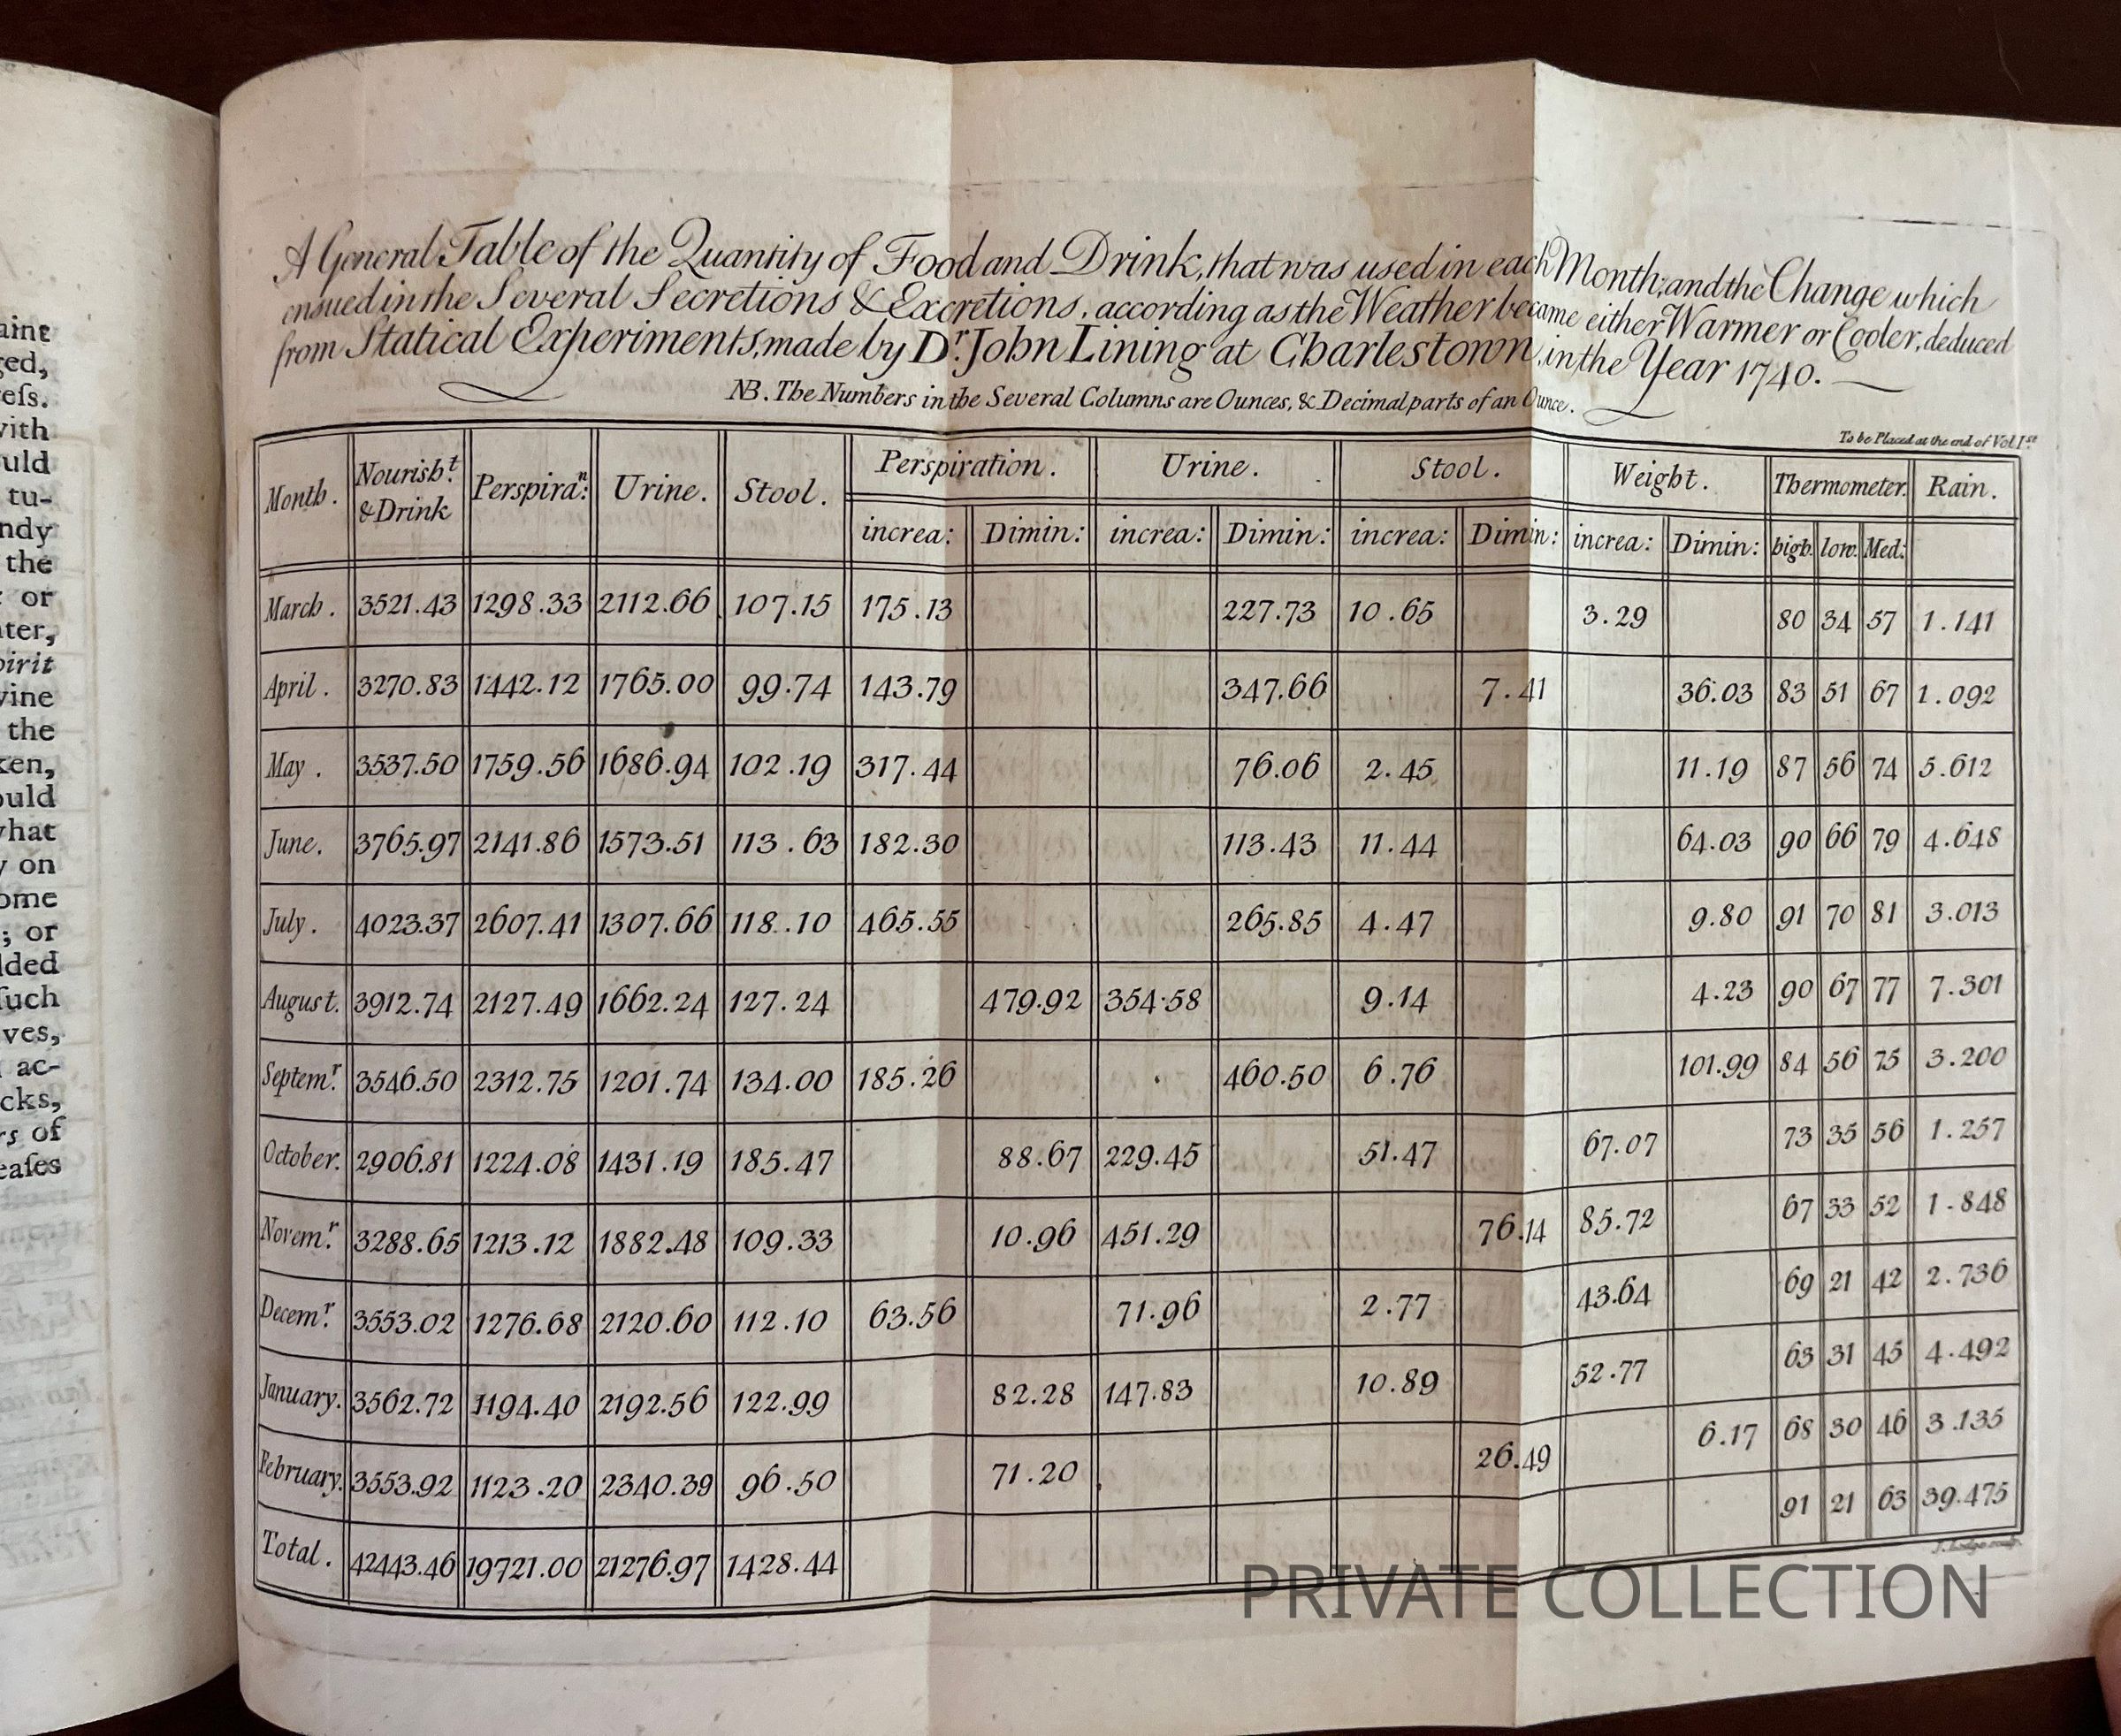 aint
ged,
eſs.
with
uld
tu-
ndy
the
: or
nter,
pirit
vine
the
ken,
ould
what
y on
ome
; or
dded
ſuch
ves,
ac-
cks,
rs of
eaſes
A General Table of the Quantity of Food and Drink, that was used in each Month; and the Change which
ensued in the Several Secretions & Excretions, according as the Weather became either Warmer or Cooler, deduced
from Statical Experiments, made by Dr. John Lining at Charlestown, in the Year 1740.
NB. The Numbers in the Several Columns are Ounces, & Decimal parts of an Ounce.
To be Placed at the end of Vol. I.st
Month. Nourisht. & Drink Perspiran: Urine. Stool. Perspiration. Urine. Stool. Weight. Thermometer. Rain.
increa: Dimin: increa: Dimin: increa: Dimin: increa: Dimin: high. low. Med:
March. 3521.43 1298.33 2112.66 107.15 175.13 227.73 10.65 3.29 80 34 57 1.141
April. 3270.83 1442.12 1765.00 99.74 143.79 347.66 7.41 36.03 83 51 67 1.092
May. 3537.50 1759.56 1686.94 102.19 317.44 76.06 2.45 11.19 87 56 74 5.612
June. 3765.97 2141.86 1573.51 113.63 182.30 113.43 11.44 64.03 90 66 79 4.648
July. 4023.37 2607.41 1307.66 118.10 465.55 265.85 4.47 9.80 91 70 81 3.013
August. 3912.74 2127.49 1662.24 127.24 479.92 354.58 9.14 4.23 90 67 77 7.301
Septemr. 3546.50 2312.75 1201.74 134.00 185.26 460.50 6.76 101.99 84 56 75 3.200
October. 2906.81 1224.08 1431.19 185.47 88.67 229.45 51.47 67.07 73 35 56 1.257
Novemr. 3288.65 1213.12 1882.48 109.33 10.96 451.29 76.14 85.72 67 33 52 1.848
Decemr. 3553.02 1276.68 2120.60 112.10 63.56 71.96 2.77 43.64 69 21 42 2.736
January. 3562.72 1194.40 2192.56 122.99 82.28 147.83 10.89 52.77 63 31 45 4.492
February. 3553.92 1123.20 2340.39 96.50 71.20 26.49 6.17 68 30 46 3.135
Total. 42443.46 19721.00 21276.97 1428.44 91 21 63 39.475
PRIVATE COLLECTION